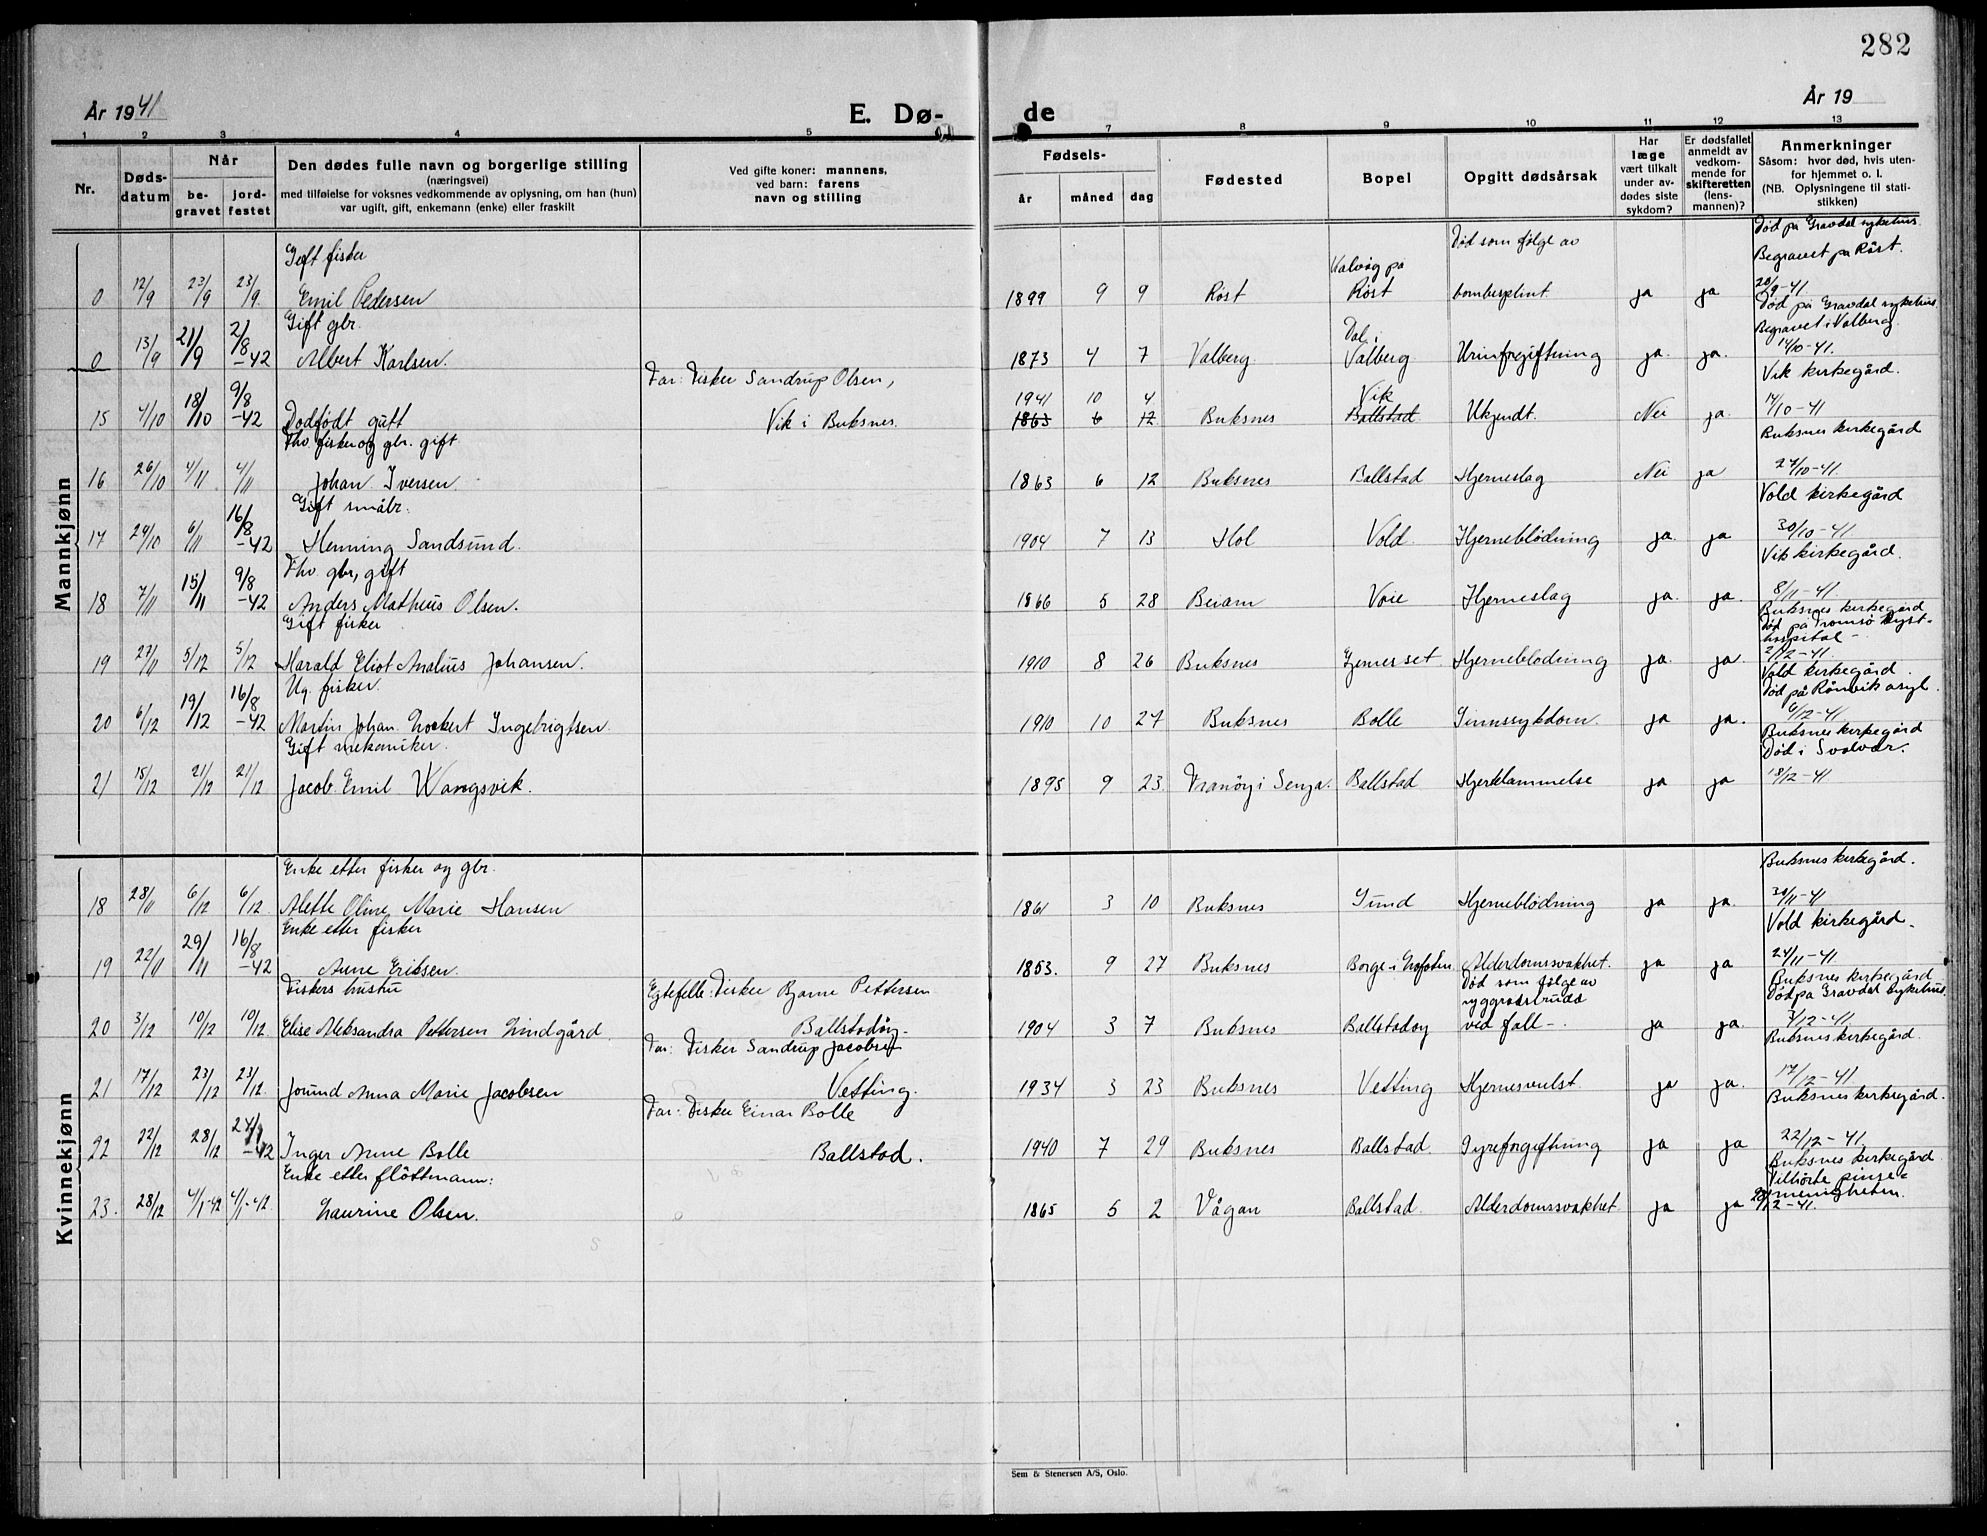 282
År 1941
E. Dø-
de
År 19
1 2 3 4 5 7 8 9 10 11 12 13
Nr.
Døds-
datum
Når
be-
gravet
jord-
festet
Den dødes fulle navn og borgerlige stilling
(næringsvei)
med tilføielse for voksnes vedkommende av oplysning, om han (hun)
var ugift, gift, enkemann (enke) eller fraskilt
Ved gifte koner: mannens,
ved barn: farens
navn og stilling
Fødsels-
år måned dag
Fødested
Bopel
Opgitt dødsårsak
Har
læge
vært tilkalt
under av-
dødes siste
sykdom?
Er dødsfallet
anmeldt av
vedkom-
mende for
skifteretten
(lens-
mannen)?
Anmerkninger
Såsom: hvor død, hvis uten-
for hjemmet o. l.
(NB. Oplysningene til stati-
stikken)
Mannkjønn
Gift fisker Død som følge av Død på Gravdal sykehus.
Kalvåg på Begravet på Röst.
0 12/9 23/9 23/9 Emil Pedersen 1899 9 9 Röst Röst bombesplint. ja ja 20/9-41.
Gift gbr. Død på Gravdal sykehus.
Dal i Begravet i Valberg.
0 13/9 21/9 2/8-42 Albert Karlsen. 1873 4 7 Valberg Valberg Urinforgiftning ja. ja. 14/10-41.
Far: Fisker Sandrup Olsen, Vik kirkegård.
1941 10 4 Vik
15 4/10 18/10 9/8-42 Dødfödt gutt Vik i Buksnes. 1863 6 12 Buksnes Ballstad Ukjendt. Nei ja. 14/10-41
Fhv fisker og gbr. gift Buksnes kirkegård
16 26/10 4/11 4/11 Johan Iversen. 1863 6 12 Buksnes Ballstad Hjerneslag Nei ja 27/10-41.
Gift småbr. Vold kirkegård
17 29/10 6/11 16/8-42 Henning Sandsund. 1904 7 13 Hol Vold. Hjerneblödning ja. ja 30/10-41
Fhv gbr, gift Vik kirkegård.
18 7/11 15/11 9/8-42 Anders Mathius Olsen. 1866 5 28 Beiarn Voie Hjerneslag ja. ja. 8/11-41.
Gift fisker Buksnes kirkegård
Död på Tromsö kyst-
hospital-
19 27/11 5/12 5/12 Harald Eliot Analius Johansen. 1910 8 26 Buksnes Gjerrset Hjerneblödning ja. ja. 2/12-41.
Ug. fisker. Vold kirkegård.
Död på Rönvik asyl.
20 6/12 19/12 16/8-42 Martin Johan Lockert Ingebrigtsen. 1910 10 27 Buksnes Bolle Sinnssykdom. ja ja. 6/12-41.
Gift mekaniker. Buksnes kirkegård
Død i Svolvær.
21 15/12 21/12 21/12 Jacob Emil Wangsvik. 1895 9 23. Tranöy i Senja. Ballstad Hjertelammelse ja ja 18/12-41
Kvinnekjønn
Enke etter fisker og gbr. Buksnes kirkegård.
18 28/11 6/12 6/12. Alette Oline Marie Hansen 1861 3 10 Buksnes Sund Hjerneblödning ja ja. 30/11-41
Enke etter fisker Vold kirkegård.
19 22/11 29/11 16/8-42 Anne Eriksen. 1853. 9 27 Buksnes Borge i Lofoten Alderdomssvakhet. ja ja 24/11-41.
Fiskers hustru Egtefelle: Fisker Bjarne Pettersen Död som følge av Buksnes kirkegård
ryggradsbrudd Död på Gravdal sykehus.
20 3/12 10/12 10/12 Elise Aleksandra Pettersen Lindgård. Ballstadöy- 1904 3 7 Buksnes Ballstadöy ved fall-. ja ja. 3/12-41
Far: Fisker Sandrup Jacobsen Buksnes kirkegård.
21 17/12 23/12 23/12. Jorund Anna Marie Jacobsen Vetting. 1934 3 23 Buksnes Vetting Hjernesvulst ja ja. 17/12-41
Far: Fisker Einar Bolle Buksnes kirkegård.
22 22/12 28/12 -42 Inger Anne Bolle Ballstad. 1940 7 29 Buksnes Ballstad. Syreforgiftning ja ja 22/12-41.
Enke etter flöttmann: Buksnes kirkegård
Tilhörte pinse-
menigheten.
23. 28/12 4/1-42 4/1-42. Laurine Olsen. 1865 5 2 Vågan Ballstad. Alderdomssvakhet ja ja 29/12-41.
Sem & Stenersen A/S, Oslo.